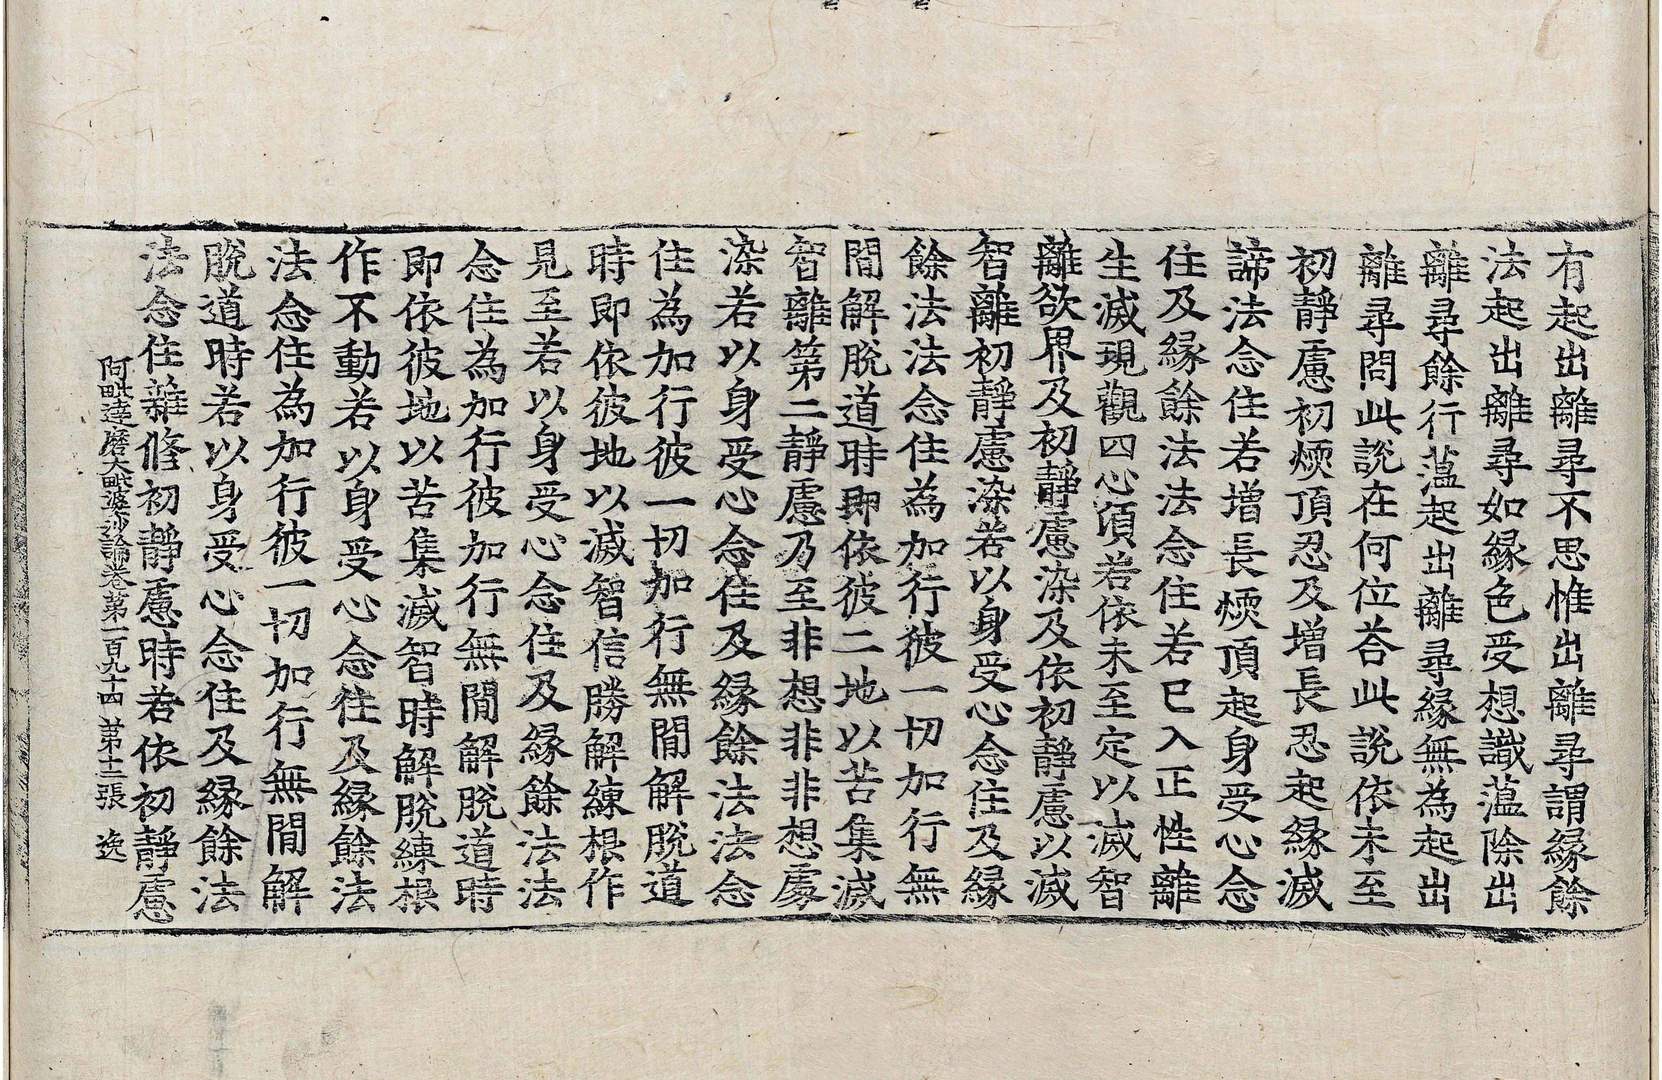 有起出離尋不思惟出離尋謂縁餘
法起出離尋如縁色受想識薀除出
離尋餘行薀起出離尋縁無為起出
離尋問此說在何位荅此說依未至
初靜慮初煗頂忍及增長忍起縁滅
諦法念住若增長煗頂起身受心念
住及縁餘法法念住若已入正性離
生滅現觀四心頃若依未至定以滅智
離欲界及初靜慮染及依初靜慮以滅
智離初靜慮染若以身受心念住及縁
餘法法念住為加行彼一切加行無
間解脫道時即依彼二地以苦集滅
智離第二靜慮乃至非想非非想處
染若以身受心念住及縁餘法法念
住為加行彼一切加行無間解脫道
時即依彼地以滅智信勝解練根作
見至若以身受心念住及縁餘法法
念住為加行彼加行無間解脫道時
即依彼地以苦集滅智時解脫練根
作不動若以身受心念住及縁餘法
法念住為加行彼一切加行無間解
脫道時若以身受心念住及縁餘法
法念住雜修初靜慮時若依初靜慮
阿毗達磨大毗婆沙論卷第一百九十四 第十二張 逸